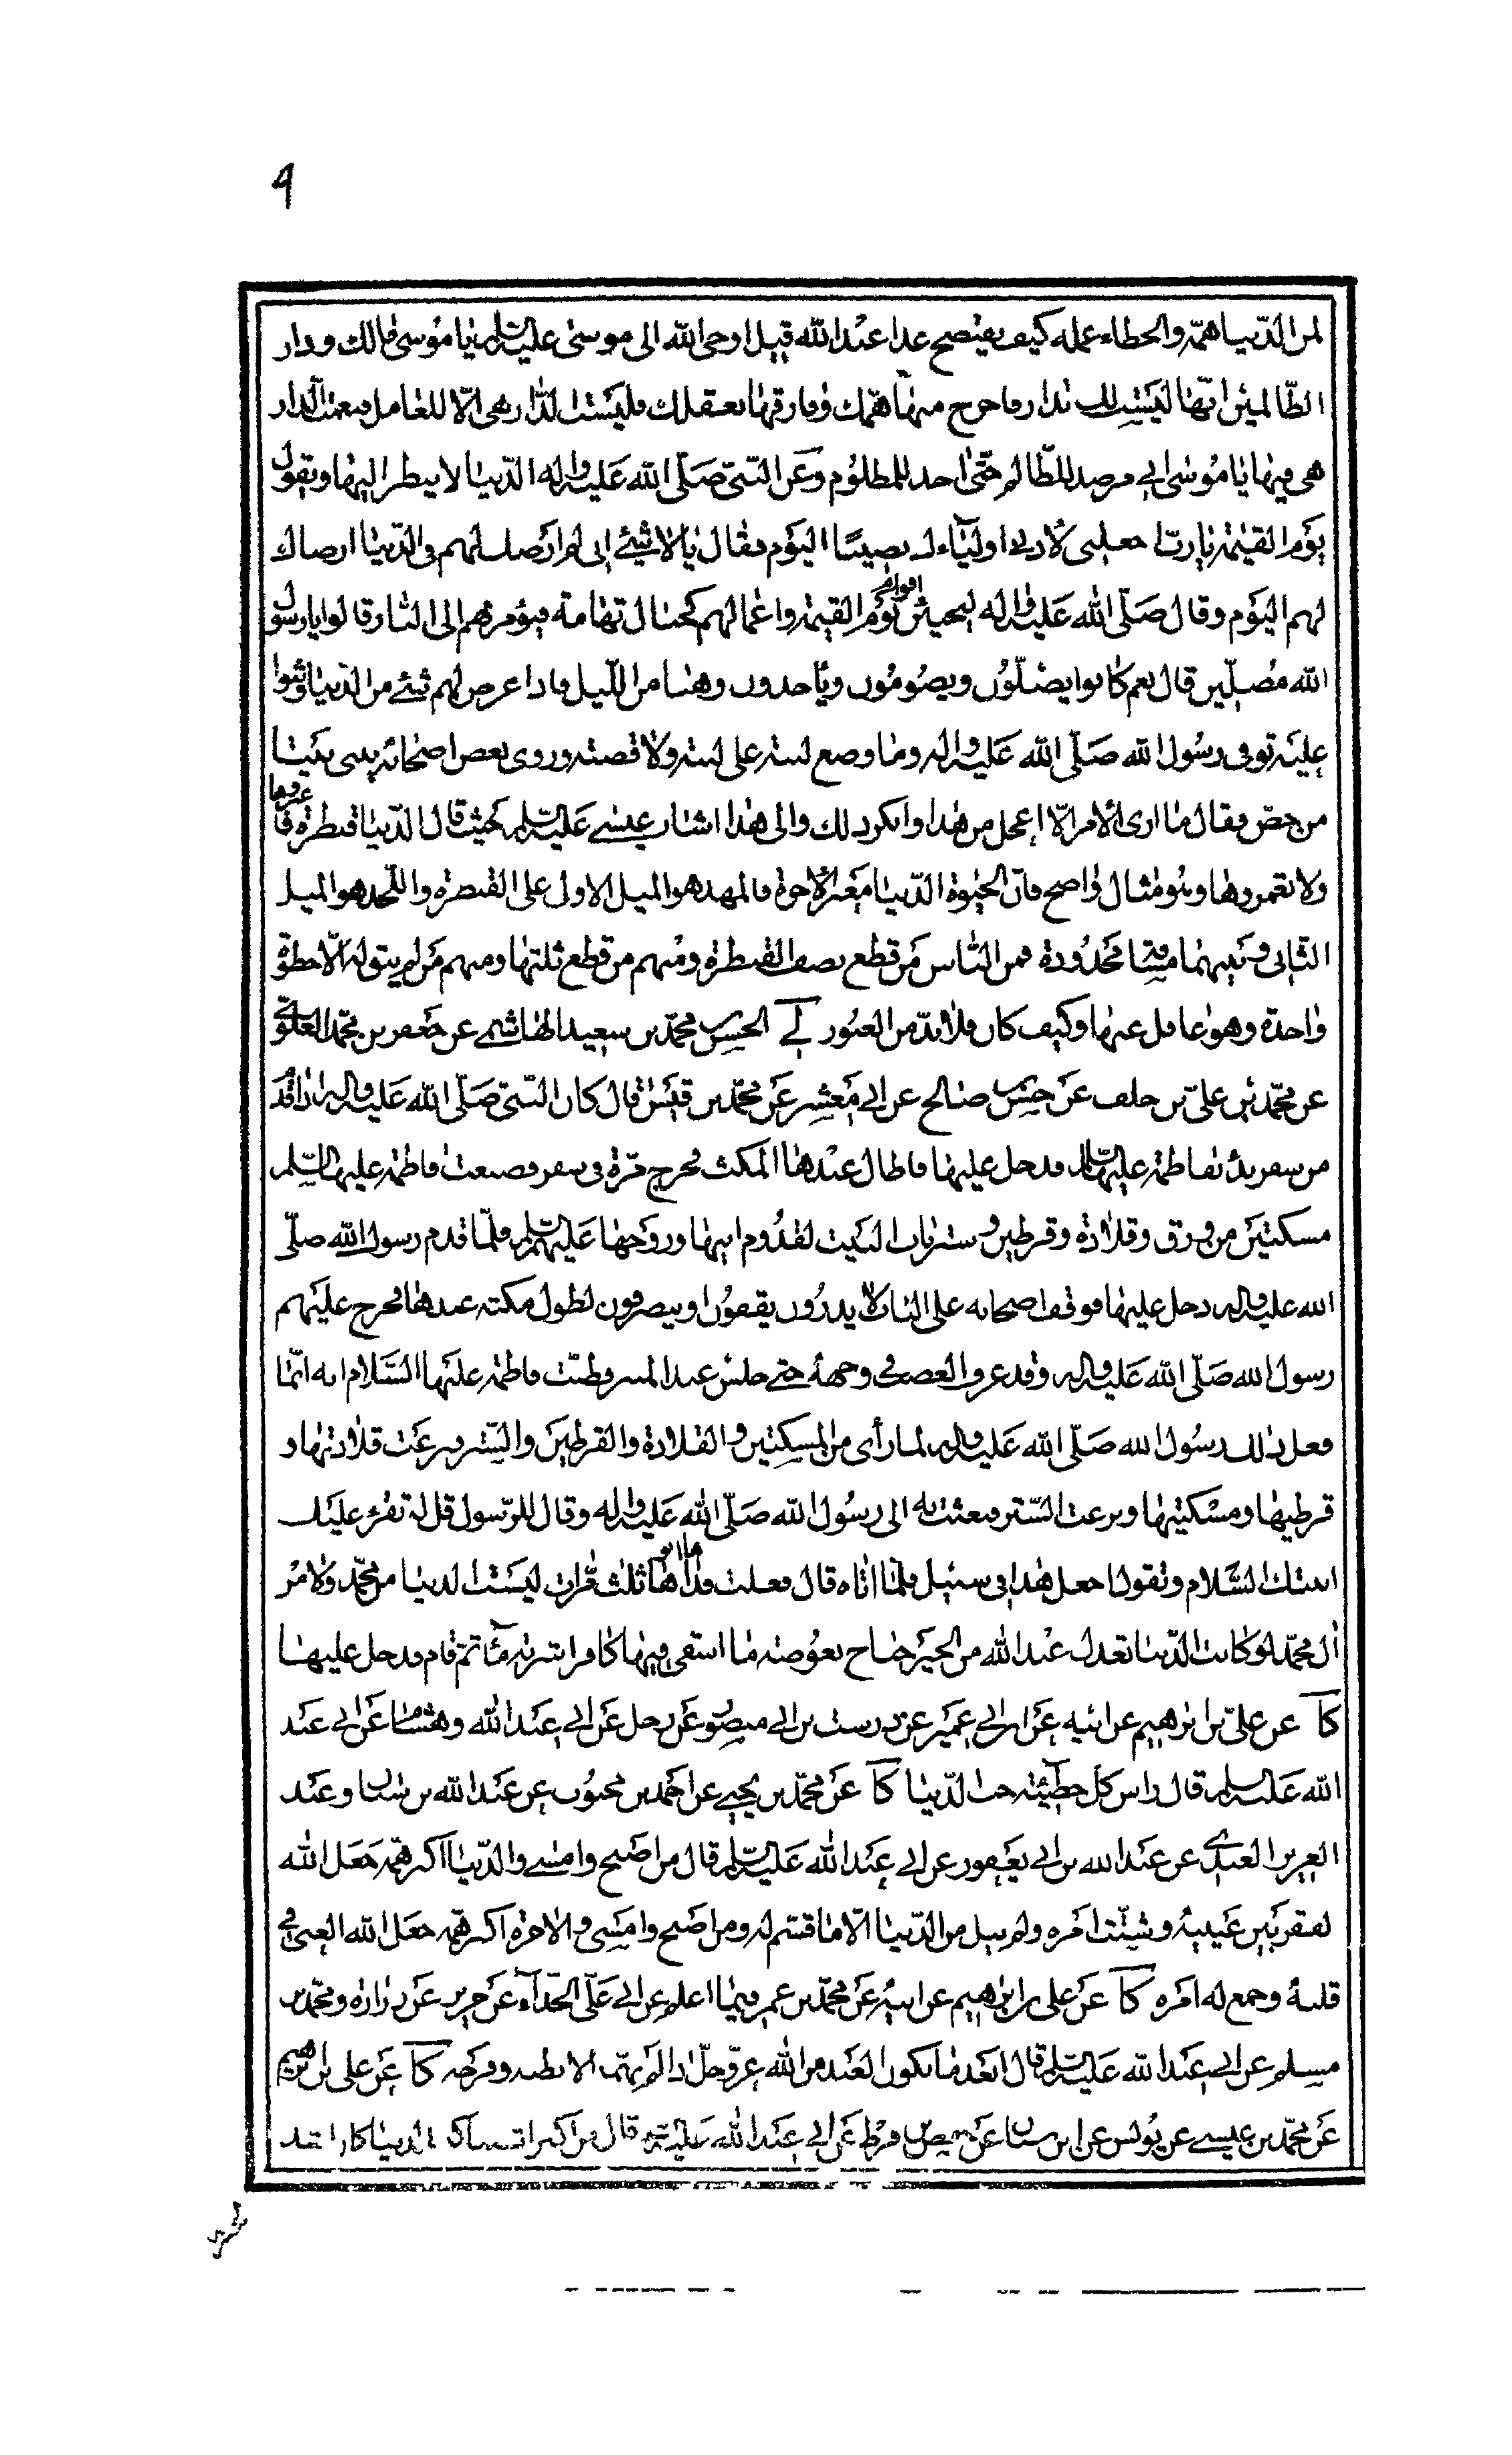 ٩
لمن الدّنيا همّه والخطاء عمله كيف يفتضح غدا عند الله قيل اوحى الله الى موسى عليه السّلم يا موسى مالك ودار
الظّالمين انّها ليست لك بدار فاخرج منها همّك وفارقها بعقلك فليست الدّار هى الّا للعامل فنعمت الدار
هى فيها يا موسى انى مرصد للظّالم حتّى اخذ للمظلوم وعن النّبى صَلّى الله عَليه واله الدّنيا لا ينظر اليها ويقول
يوم القيمة يا ربّ اجعلنى لادنى اوليائك نصيبًا اليوم فقال يا لا شئ انى لم ارضك لهم فى الدّنيا ارضاك
لهم اليوم وقال صَلّى الله عَليه واله ليجيئن اقوام يوم القيمة واعمالهم كجبال تهامة فيؤمر بهم الى النّار قالوا يا رسول
الله مصلّين قال نعم كانوا يصلّون ويصومون ويأخذون وهنا من اللّيل فاذا عرض لهم شئ من الدّنيا وثبوا
عليه توفى رسول الله صَلّى الله عَليه واله وما وضع لبنة على لبنة ولا قصبة وروى بعض اصحابه يبنى بيتا
من جصّ فقال ما ارى الامر الّا اعجل من هذا وانكر ذلك والى هذا اشار عيسى عَليه السّلم حيث قال الدّنيا قنطرة فاعبروها
ولا تعمروها وهو مثال واضح فانّ الحيوة الدّنيا معبر الاخرة فالمهد هو الميل الاول على القنطرة واللّحد هو الميل
الثّانى وبينهما مسافة محدودة فمن النّاس من قطع نصف القنطرة ومنهم من قطع ثلثها ومنهم من لم يبق له الّا خطوة
واحدة وهو غافل عنها وكيف كان فلا بدّ من العبور لى الحسن بن محمّد بن سعيد الهاشمى عن جعفر بن محمّد العلوى
عن محمّد بن علىّ بن خلف عن حسن بن صالح عن ابى معشر عن محمّد بن قيس قال كان النّبى صَلّى الله عَليه واله اذا قدم
من سفر بدأ بفاطمة عليها السّلم فدخل عليها فاطال عندها المكث فخرج مرّة فى سفر فصنعت فاطمة عليها السّلم
مسكتين من ورق وقلادة وقرطين وستر باب البيت لقدوم ابيها وزوجها عَليهما السّلم فلمّا قدم رسول الله صلّى
الله عليه واله دخل عليها فوقف اصحابه على الباب لا يدرون يقفون او ينصرفون لطول مكثه عندها فخرج عليهم
رسول الله صَلّى الله عَليه واله وقد عرف الغضب فى وجهه حتى جلس عند المنبر فظنّت فاطمة عليها السَّلام انه انّما
فعل ذلك رسول الله صَلّى الله عَليه واله لما رأى من المسكتين والقلادة والقرطين والسّتر فنزعت قلادتها و
قرطيها ومسكتيها ونزعت السّتر فبعثت به الى رسول الله صَلّى الله عَليه واله وقال للرّسول قل له تقرء عليك
ابنتك السَّلام وتقول اجعل هذا فى سبيل فلمّا اتاه قال فعلت فداها ابوها ثلث مرّات ليست الدنيا من محمّد ولا من
ال محمّد لو كانت الدّنيا تعدل عند الله من الخير جناح بعوضة ما اسقى فيها كافرا شربة ماء ثمّ قام فدخل عليها
كا عن علىّ بن ابرهيم عن ابيه عن ابن ابى عمير عن درست بن ابى منصور عن رجل عن ابى عبد الله وهشام عن ابى عبد
الله عَليه السلم قال راس كلّ خطيئة حبّ الدّنيا كا عن محمّد بن يحيى عن احمد بن محبوب عن عبد الله بن سنان وعبد
العزيز العبدى عن عبد الله بن ابى يعفور عن ابى عبد الله عَليه السّلم قال من اصبح وامسى والدّنيا اكبر همّه جَعَل الله
الفقر بين عينيه وشتّت امره ولم ينل من الدّنيا الّا ما قسّم له ومن اصبح وامسى والاخرة اكبر همّه جعل الله الغنى فى
قلبه وجمع له امره كا عن على بن ابرهيم عن ابيه عن محمّد بن عمر فيما اعلم عن ابى علّى الحذّاء عن حريز عن زراره ومحمّد بن
مسلم عن ابى عبد الله عَليه السّلم قال ابعد ما يكون العبد من الله عزّ وجلّ اذا لم يهمّه الا بطنه وفرجه كا عن على بن ابرهيم
عن محمّد بن عيسى عن يونس عن ابن سنان عن حفص بن قرط عن ابى عبد الله عليه السّلم قال من اكبر اشتباكه بالدنيا كان اشد